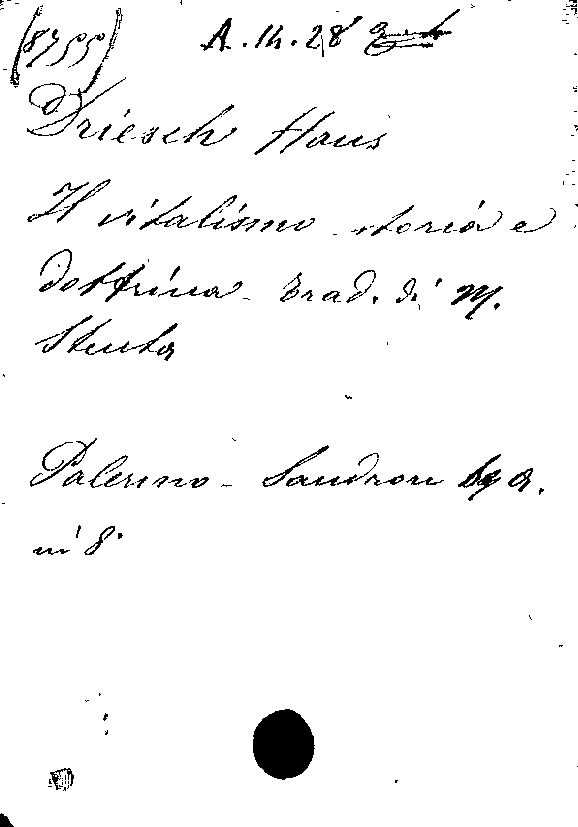 (8755) A.14.28
Driesch Hans
Il vitalismo storia e
dottrina - Trad. di M.
Stenta
Palermo - Sandron
in 8°